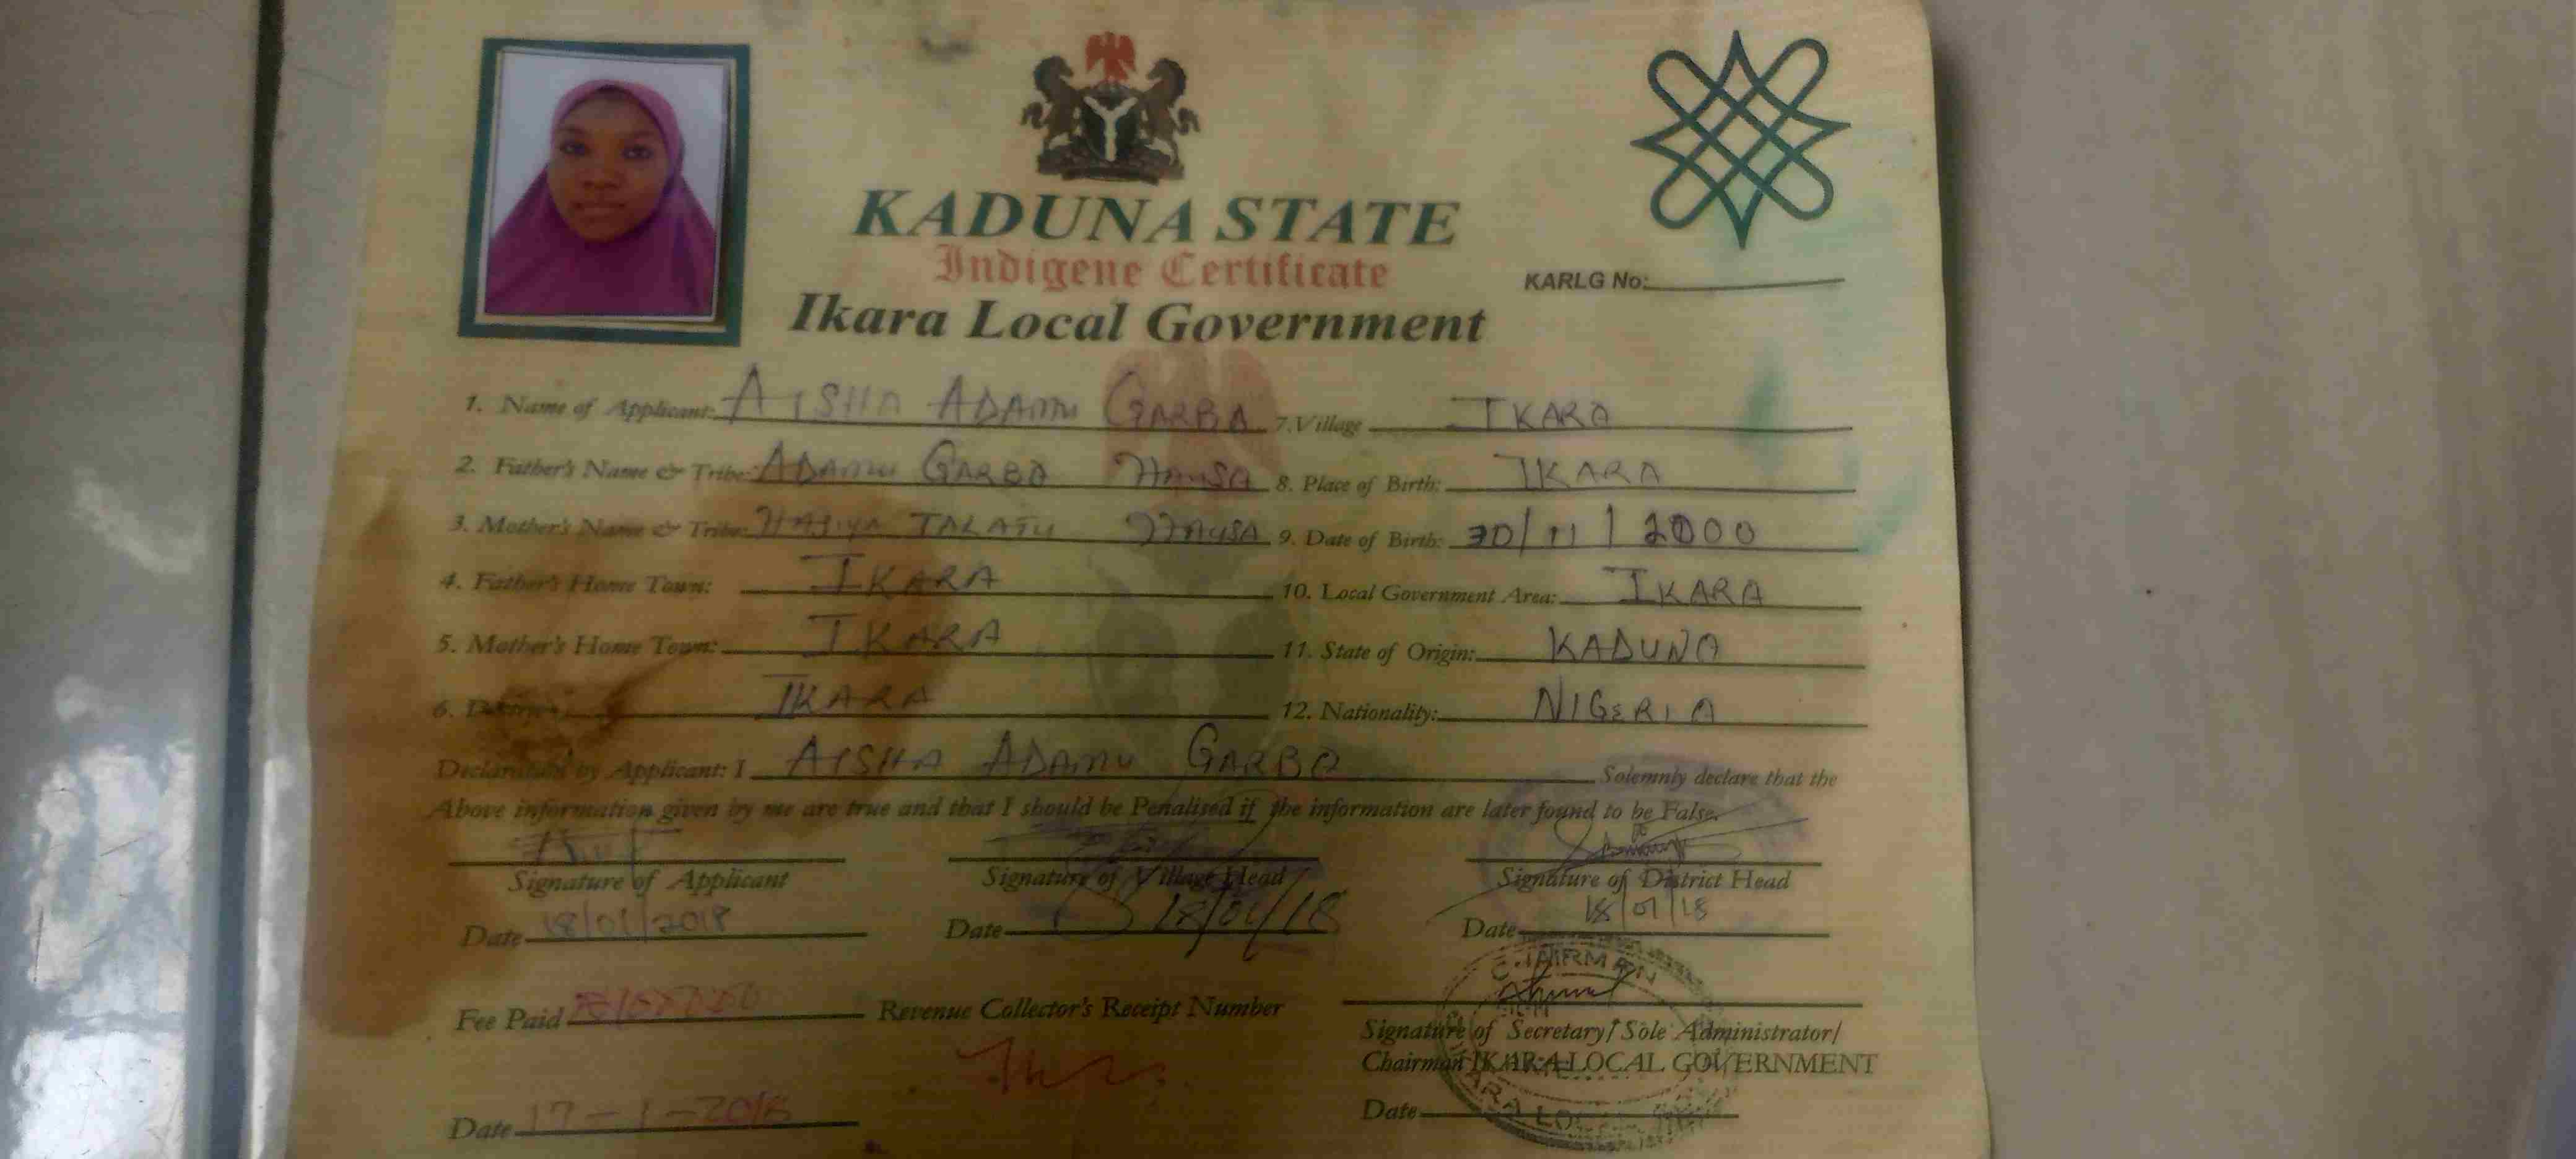 KADUNA STATE
Indigene Certificate
KARLG No:
Ikara Local Government
1. Name of Applicant: AISHA ADAMU GARBA
7. Village IKARA
2. Father's Name & Tribe: ADAMU GARBA HAUSA
8. Place of Birth: IKARA
3. Mother's Name & Tribe: HAJIYA TALATU HAUSA
9. Date of Birth: 30/11/2000
4. Father's Home Town: IKARA
10. Local Government Area: IKARA
5. Mother's Home Town: IKARA
11. State of Origin: KADUNA
6. District: IKARA
12. Nationality: NIGERIA
Declaration by Applicant: I AISHA ADAMU GARBA Solemnly declare that the
Above information given by me are true and that I should be Penalised if the information are later found to be False.
Signature of Applicant
Signature of Village Head
Signature of District Head
Date 18/01/2018
Date 18/01/18
Date 18/01/18
CHAIRMAN
Fee Paid
Revenue Collector's Receipt Number
Signature of Secretary/Sole Administrator/
Chairman IKARA LOCAL GOVERNMENT
Date 17-1-2018
Date